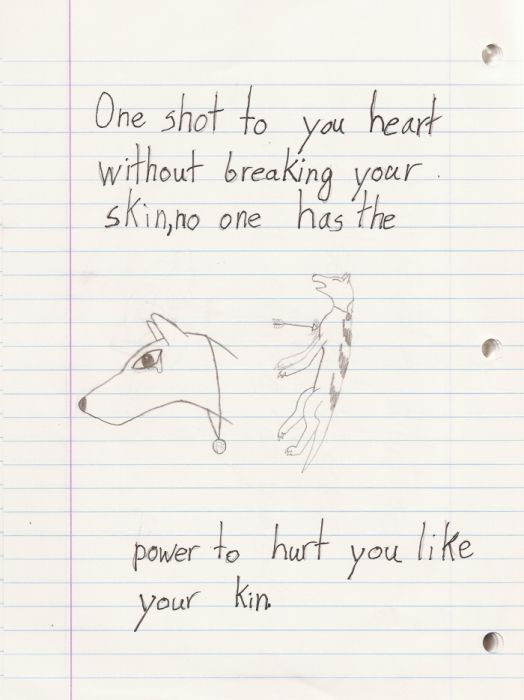 One shot to you heart
without breaking your
skin,no one has the
power to hurt you like
your kin.